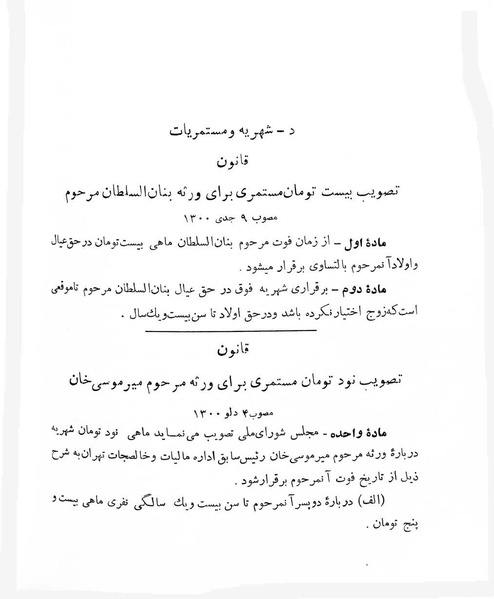 د - شهریه و مستمریات
قانون
تصویب بیست تومان مستمری برای ورثه بنان السلطان مرحوم
مصوب ۹ جدی ۱۳۰۰
مادۀ اول - از زمان فوت مرحوم بنان السلطان ماهی بیست تومان در حق عیال
و اولاد آنمرحوم بالتساوی برقرار میشود .
مادۀ دوم - برقراری شهریه فوق در حق عیال بنان السلطان مرحوم تاموقعی
است که زوج اختیار نکرده باشد و در حق اولاد تا سن بیست و یک سال .
قانون
تصویب نود تومان مستمری برای ورثه مرحوم میر موسی خان
مصوب ۴ دلو ۱۳۰۰
مادۀ واحده - مجلس شورای ملی تصویب می نماید ماهی نود تومان شهریه
دربارۀ ورثه مرحوم میر موسی خان رئیس سابق اداره مالیات و خالصجات تهران به شرح
ذیل از تاریخ فوت آنمرحوم برقرار شود .
(الف) دربارۀ دو پسر آنمرحوم تا سن بیست و یک سالگی نفری ماهی بیست و
پنج تومان .